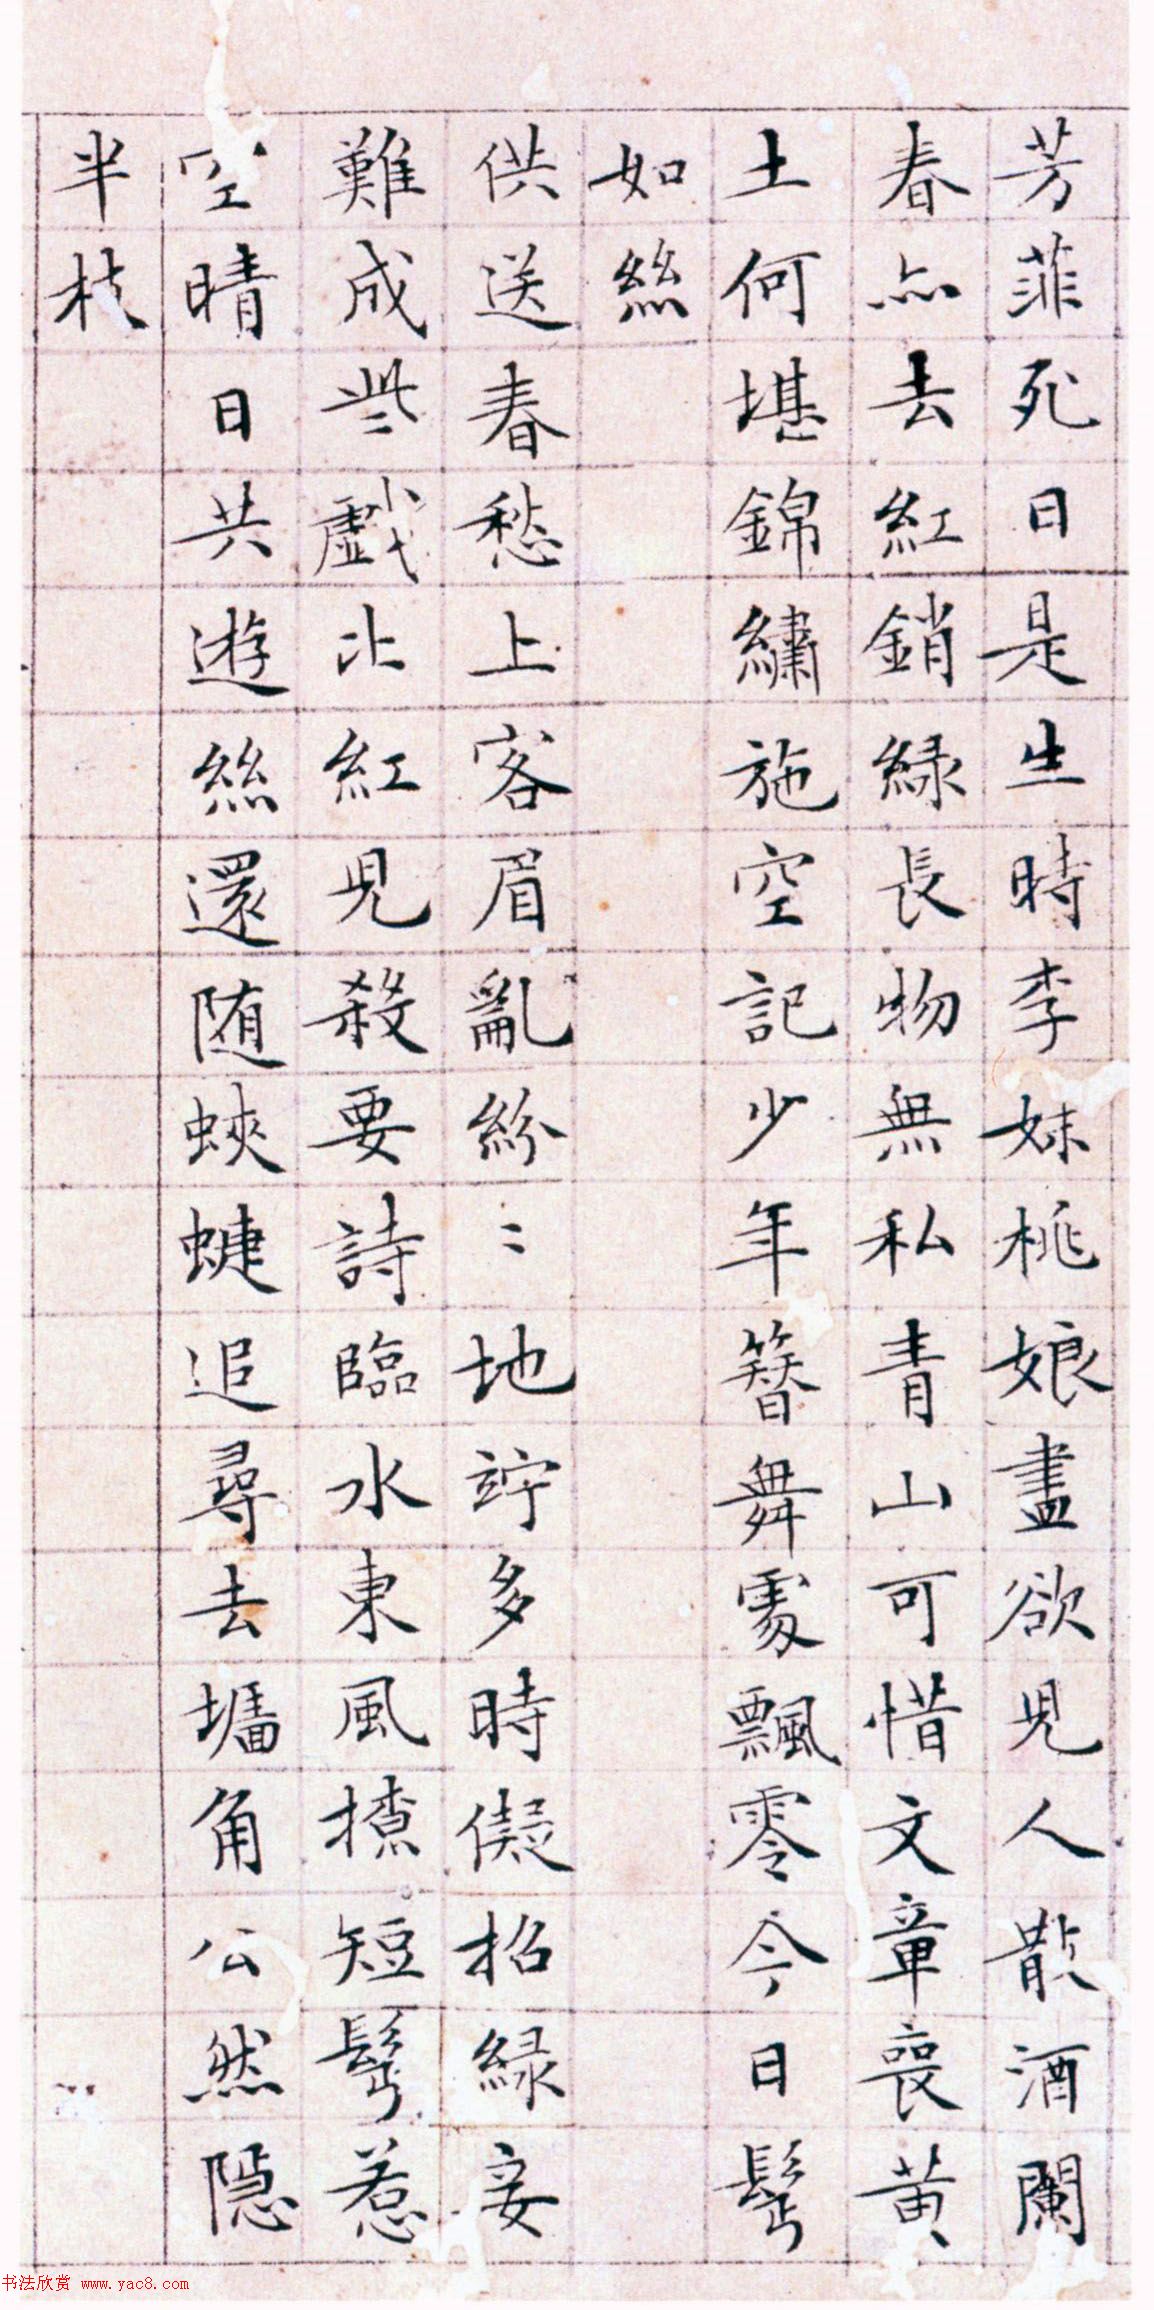 芳菲死日是生時李妹桃娘盡欲兒人散酒闌
春亦去紅銷綠長物無私青山可惜文章喪黃
土何堪錦繡施空記少年簪舞處飄零今日鬂
如絲
供送春愁上客眉亂紛〻地竚多時儗招綠妾
難成些戲比紅兒殺要詩臨水東風撩短鬂惹
空晴日共遊絲還随蛺蜨追尋去墻角公然隱
半枝
书法欣赏 www.yac8.com